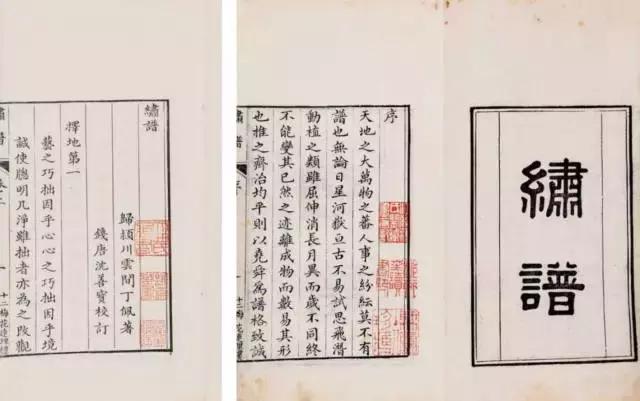 繡譜
序
天地之大萬物之蕃人事之紛紜莫不有
譜也無論日星河嶽亘古不易試思飛潛
動植之類雖屈伸消長月異而歲不同終
不能變其已然之迹離成物而數易其形
也推之齊治均平則以堯舜為譜格致誠
繡譜
序
一
繡譜
歸潁川雲間丁佩著
錢唐沈善寶校訂
擇地第一
藝之巧拙因乎心心之巧拙因乎境
誠使聰明几淨雖拙者亦為之改觀
繡譜
卷上
一
十二梅花連理樓